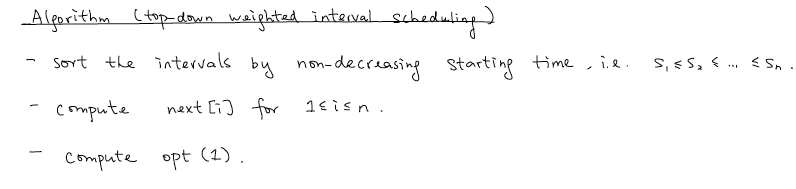 Algorithm (top-down weighted interval scheduling)
- sort the intervals by non-decreasing starting time, i.e. s₁ ≤ s₂ ≤ ... ≤ sₙ.
- compute next[i] for 1 ≤ i ≤ n.
- compute opt(1).